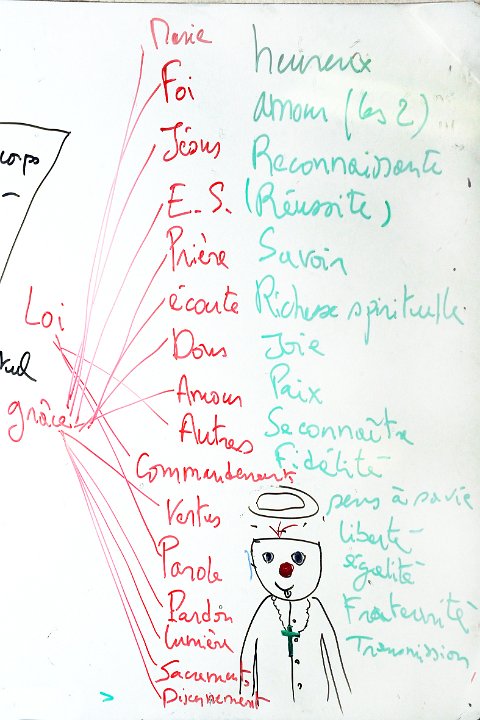 Marie
Foi
Jésus
E.S.
Prière
écoute
Dons
Amour
Autres
Commandements
Vertus
Parole
Pardon
Lumière
Sacrements
Discernement
Loi
grâce
heureux
amour (les 2)
Reconnaissante
(Réussite)
Savoir
Richesse spirituelle
Joie
Paix
Se connaître
Fidélité
sens à sa vie
liberté
égalité
Fraternité
Transmission